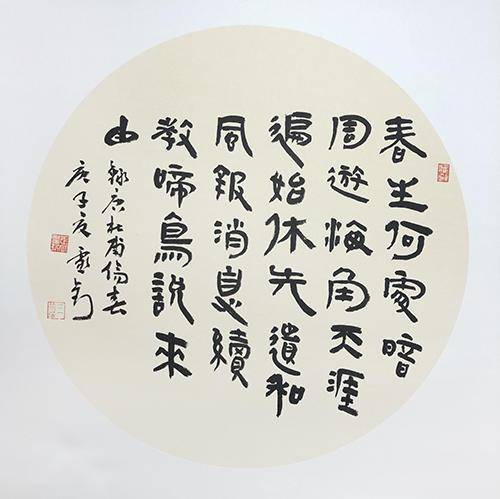 春生何處暗
周遊海角天涯
遍始休先遣和
風報消息續
教啼鳥說來
由 錄唐杜甫傷春
庚子夏